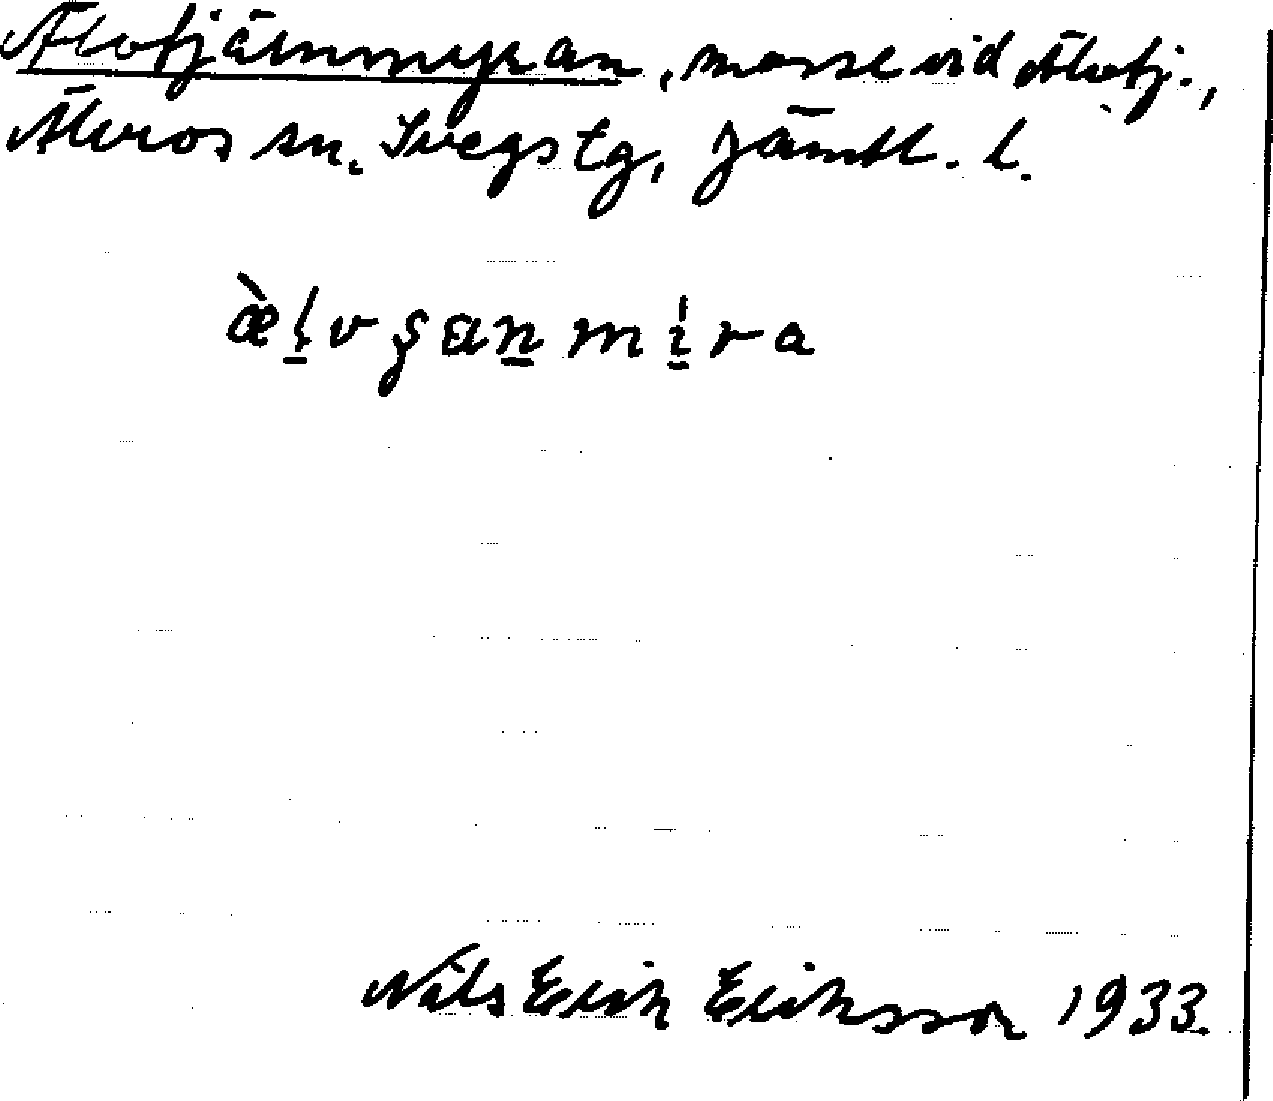 Älvtjärnmyran, mosse vid Älvtj.,
Älvros sn. Svegs tg, Jämtl. l.
Nils Erik Eriksson 1933.